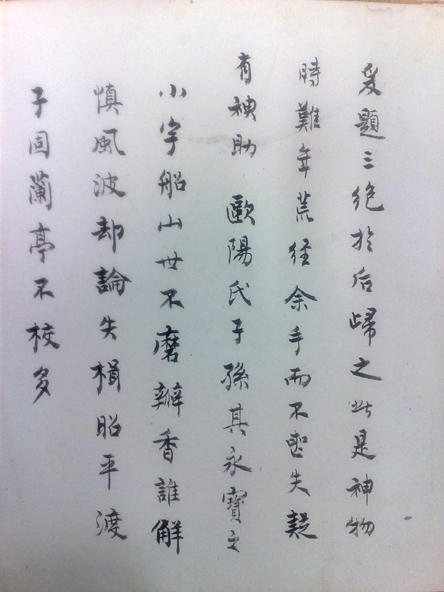 爰題三絶於后歸之此是神物
時難年荒經余手而不遽失疑
有神助　歐陽氏子孫其永寶之
小字船山世不磨瓣香誰解
慎風波却論失楫昭平渡
子固蘭亭不校多